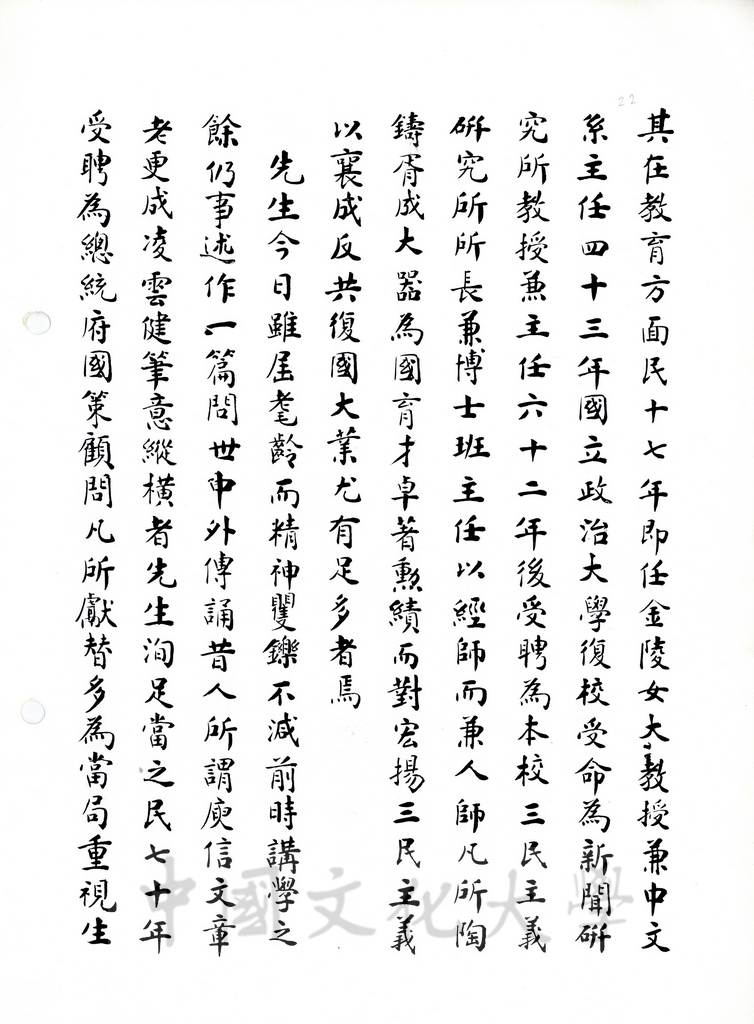 22
其在教育方面民十七年即任金陵女大教授兼中文
系主任四十三年國立政治大學復校受命為新聞研
究所教授兼主任六十二年後受聘為本校三民主義
研究所所長兼博士班主任以經師而兼人師凡所陶
鑄胥成大器為國育才卓著勳績而對宏揚三民主義
以襄成反共復國大業尤有足多者焉
先生今日雖屆耄齡而精神矍鑠不減前時講學之
餘仍事述作一篇問世中外傳誦昔人所謂庾信文章
老更成凌雲健筆意縱橫者先生洵足當之民七十年
受聘為總統府國策顧問凡所獻替多為當局重視生
中國文化大學